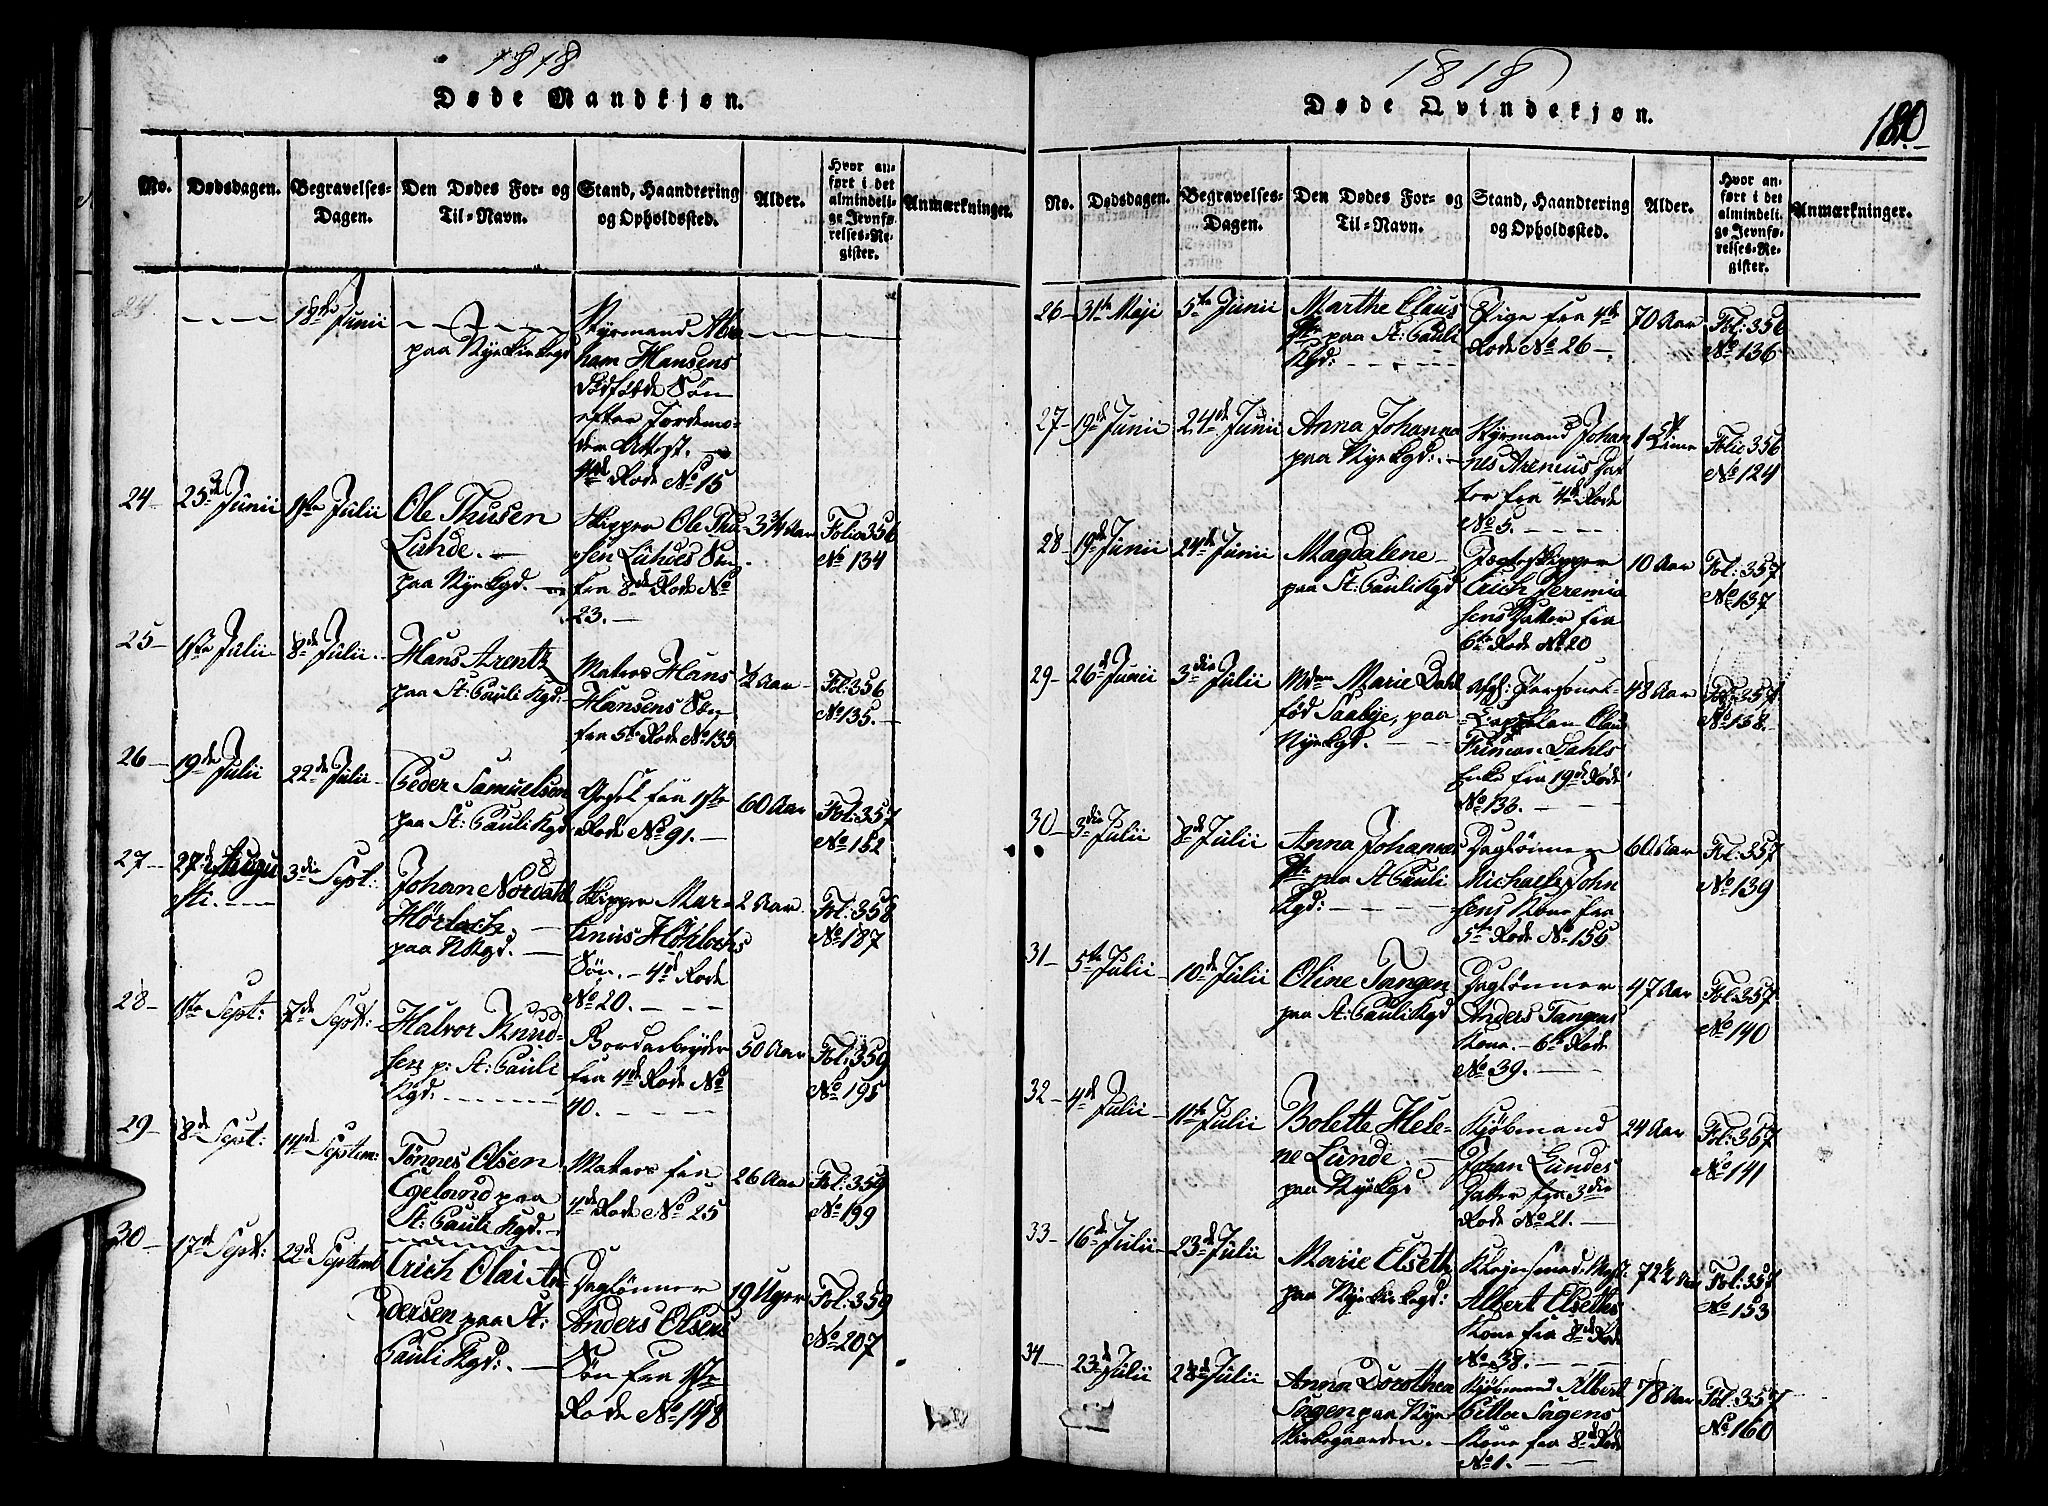 1818
Døde Mandkjøn.
No.
Dødsdagen.
Begravelses-
Dagen.
Den Dødes For- og
Til-Navn.
Stand, Haandtering
og Opholdssted.
Alder.
Hvor an-
ført i det
almindeli-
ge Jevnfø-
relses-Re-
gister.
Anmærkninger.
18de Junii
paa Nye Kirkegd
Styrmand Abra
ham Hansens
dødfødte Søn
efter Jordemo-
der Attest. —
4de Rode No 15
24
25de Junii
1ste Julii
Ole Thusen
Lunde. —
paa Nye Kgd. —
Skipper Ole Thu-
sen Lundes Søn
fra 8de Rode No
23. —
3 3/4 Aar
Folio 356
No 134
25 —
1ste Julii
8de Julii.
Hans Arentz
paa St: Pauli Kgd:
Matros Hans
Hansens Søn
fra 5te Rode No 135
1/2 Aar —
Fol: 356
No 135. —
26 —
19de Julii
22de Julii —
Peder Samuelsen
paa St: Pauli Kgd
fra 1ste
Rode No 91. —
60 Aar
Fol: 357
No 152
27 —
27de Augu
sti. - - -
3die Sept:
Johan Nordahl
paa N Kgd. —
Skipper Mar-
tinus
Søn. — 4de Rode
No 20. — — —
2 Aar
Fol: 358
No 187
28 —
1ste Sept:
7de Sept:
Halvor Knud-
sen p: St: Pauli
Kgd:
Bordarbeyder
fra 4de Rode No
40. — — — —
50 Aar
Fol: 359
No 195
29 —
8de Sept:
14de Septem:
Tønnes Olsen
Egelund paa
St: Pauli Kgd. —
Matros fra
4de Rode No 25
26 Aar
Fol: 359
No 199
30 —
17de Sept:
22de Septemb
Erich Olai An-
dersen paa St:
Pauli Kgd:. —
Daglønner
Anders Olsens
Søn fra 1ste
Rode No 148
19 Uger
Fol: 359
No 207
1818
Døde Qvindekjøn.
180
No.
Dødsdagen.
Begravelses-
Dagen.
Den Dødes For- og
Til-Navn.
Stand, Haandtering
og Opholdssted.
Alder.
Hvor an-
ført i det
almindeli-
ge Jevnfø-
relses-Re-
gister.
Anmærkninger.
26 —
31te Maji
5te Junii
Marthe Claus
paa St: Pauli
Kgd: — — —
Pige fra 4de
Rode No 26 —
70 Aar
Fol: 356
No 136
27 —
19de Junii
24de Junii
Anna Johanna
paa Nye Kgd:. —
Styrmand Johan
nes Arenius Dat
ter fra 4de Rode
No 5. — — — —
1 Time
Folio 356
No 124
28 —
19de Junii
24de Junii
Magdalene —
paa St: Pauli Kgd
Erich Jeremia
sens Datter fra
6te Rode No 20
10 Aar
Fol: 357
No 137
29 —
26de Junii
3die Julii
Mdme Marie Dahl
fød Saabye, paa
Nye Kgd. —
Afg: Personel-
Capellan Claus
Dahls
Enke fra 19de Rode
No 133. — — —
48 Aar
Fol: 357
No 138. —
30 —
3die Julii
8de Julii
Anna Johannes
paa St Pauli
Kgd: — — —
Daglønner
Michael John
sens Kone fra
5te Rode No 155
60 Aar
Fol: 357
No 139
31 —
5te Julii
10de Julii
Oline Tangen
paa St: Pauli Kgd
Daglønner
Anders Tangens
Kone. — 6te Rode
No 39. — — —
47 Aar
Fol: 357
No 140
32 —
4de Julii —
11te Julii
Bolette Hele-
ne Lunde. —
paa Nye Kgd
Kjøbmand
Johan Lundes
Datter fra 3die
Rode No 21. —
24 Aar
Fol: 357
No 141
33 —
16de Julii
23de Julii
Marie Elseth
paa Nye Kirkegd:
Kleinsmed
Albert Elseths
Kone fra 8de Rode
No 38. — — —
72 1/2 Aar
Fol: 357
No 153
34 —
23de Julii
28de Julii
Anna Dorothea
Sagen paa Nye
Kirkegaarden. —
Kjøbmand Albert
Sagens
Kone fra 8de Rode
No 1. — — —
78 Aar
Fol: 357
No 160